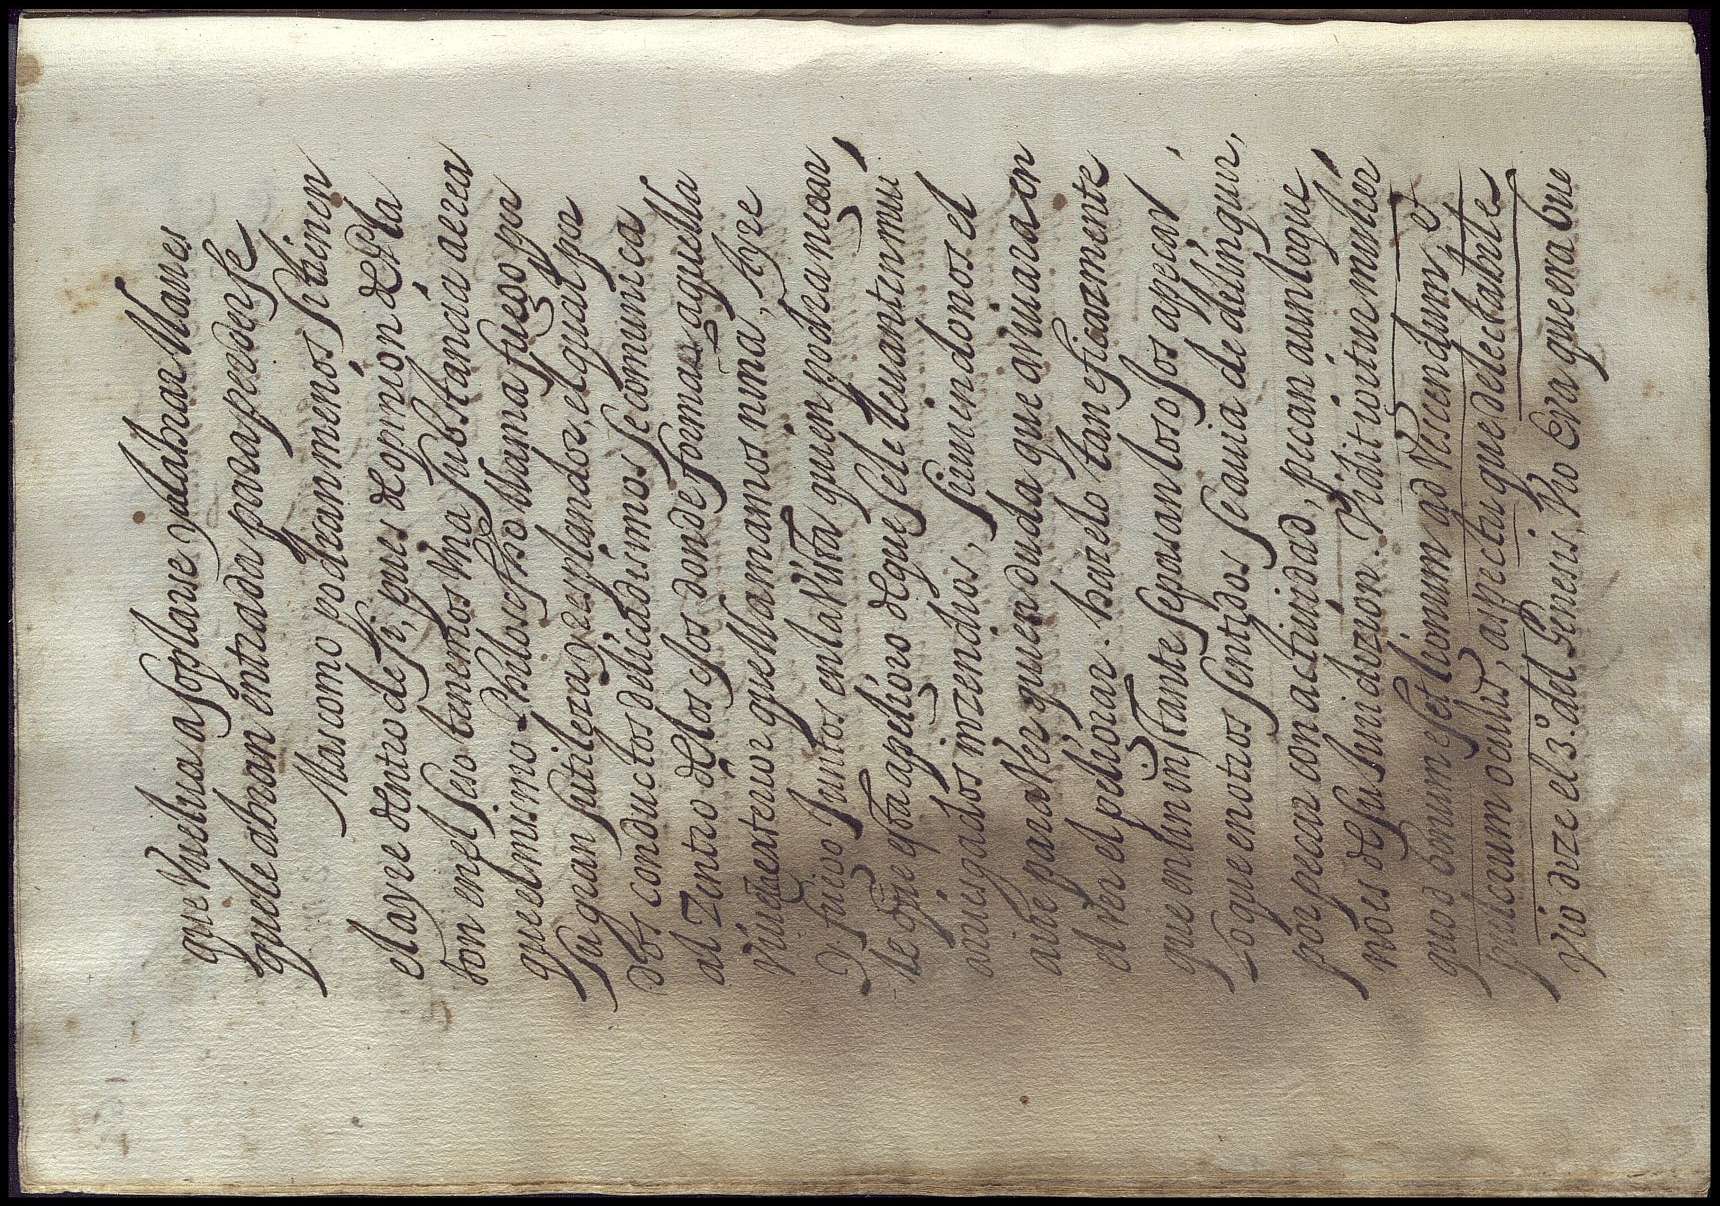 que vuelua a soplar ue y alabar llaues
que le abran entrada para perderse
Mas como podean menos si tienen
el ayre dentro de si, pues de opinion de Pla
ton en el seso tenemos vna substancia aerea
que el mismo Philosopho llama fuego por
su gran sutileza y resplandor, el qual por
dos conductos delicadisimos se comunica
al zentro de los ojos donde forma aquella
que llamamos niña, oye
y fuego juntos en la vista quien podra negar
le que esta a peligro de que se le leuanten mui
arriesgados inzendios, siruiendonos el
aire para ver quien duda que ariuara en
el ver el peligrar: hazelo tan eficazmente
que en vn instante se pasan los ojos a pecar
Lo que en otros sentidos seria de delinquir,
por pecar con actiuidad, pecan aun lo que
no es de su jurisdizion. Vidit igitur mulier
quod bonum esset lignum ad vescendum, et
pulcrum oculis, aspectu que delectabile
vio dize el 3.º del Genesis. Vio Eva que era bue